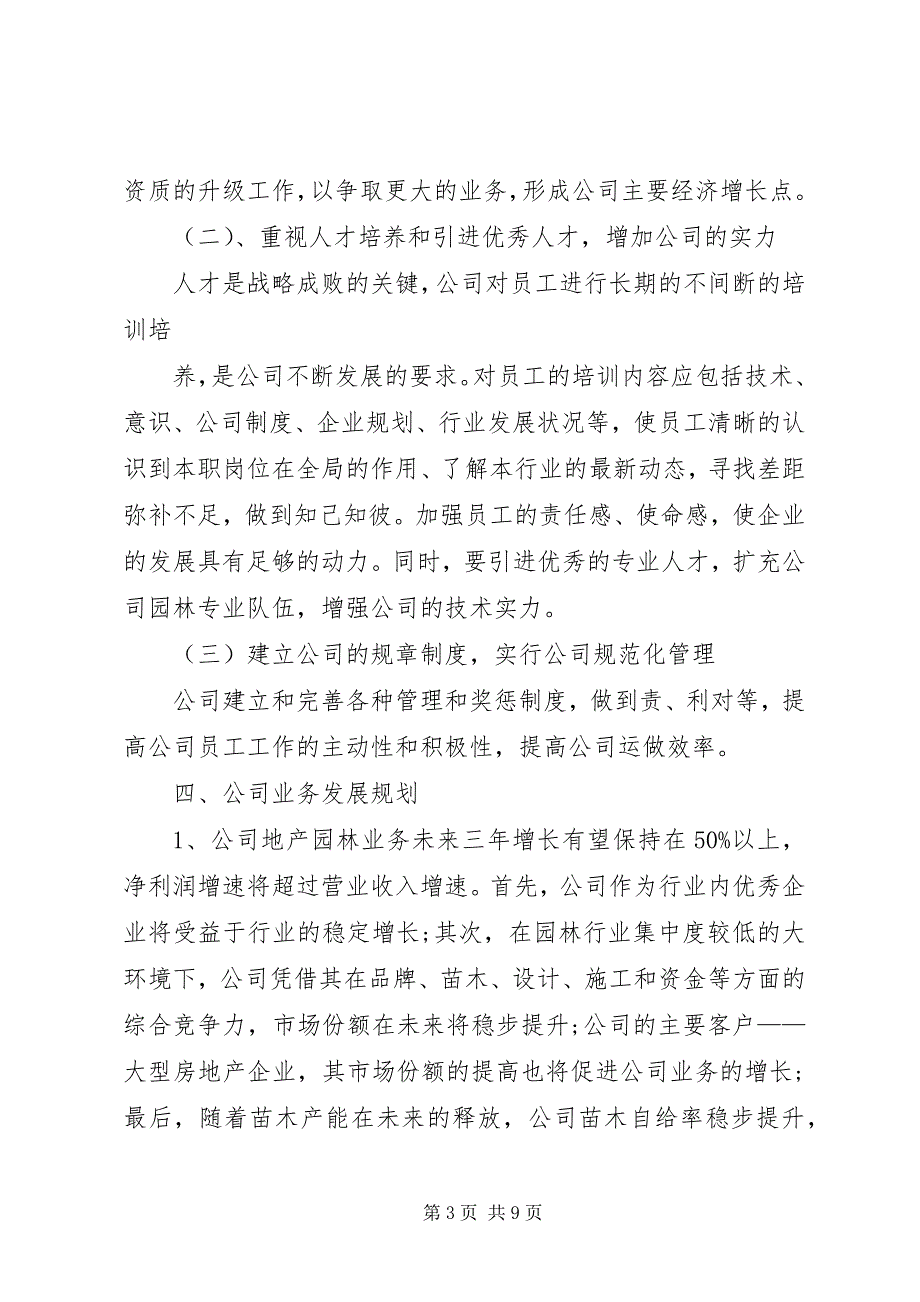 资质的升级工作，以争取更大的业务，形成公司主要经济增长点。
（二）、重视人才培养和引进优秀人才，增加公司的实力
人才是战略成败的关键，公司对员工进行长期的不间断的培
训培
养，是公司不断发展的要求。对员工的培训内容应包括技术、
意识、公司制度、企业规划、行业发展状况等，使员工清晰的认
识到本职岗位在全局的作用、了解本行业的最新动态，寻找差距
弥补不足，做到知己知彼。加强员工的责任感、使命感，使企业
的发展具有足够的动力。同时，要引进优秀的专业人才，扩充公
司园林专业队伍，增强公司的技术实力。
（三）建立公司的规章制度，实行公司规范化管理
公司建立和完善各种管理和奖惩制度，做到责、利对等，提
高公司员工工作的主动性和积极性，提高公司运做效率。
四、公司业务发展规划
1、公司地产园林业务未来三年增长有望保持在 50%以上，
净利润增速将超过营业收入增速。首先，公司作为行业内优秀企
业将受益于行业的稳定增长;其次，在园林行业集中度较低的大
环境下，公司凭借其在品牌、苗木、设计、施工和资金等方面的
综合竞争力，市场份额在未来将稳步提升;公司的主要客户——
大型房地产企业，其市场份额的提高也将促进公司业务的增长;
最后，随着苗木产能在未来的释放，公司苗木自给率稳步提升，
第 3 页 共 9 页